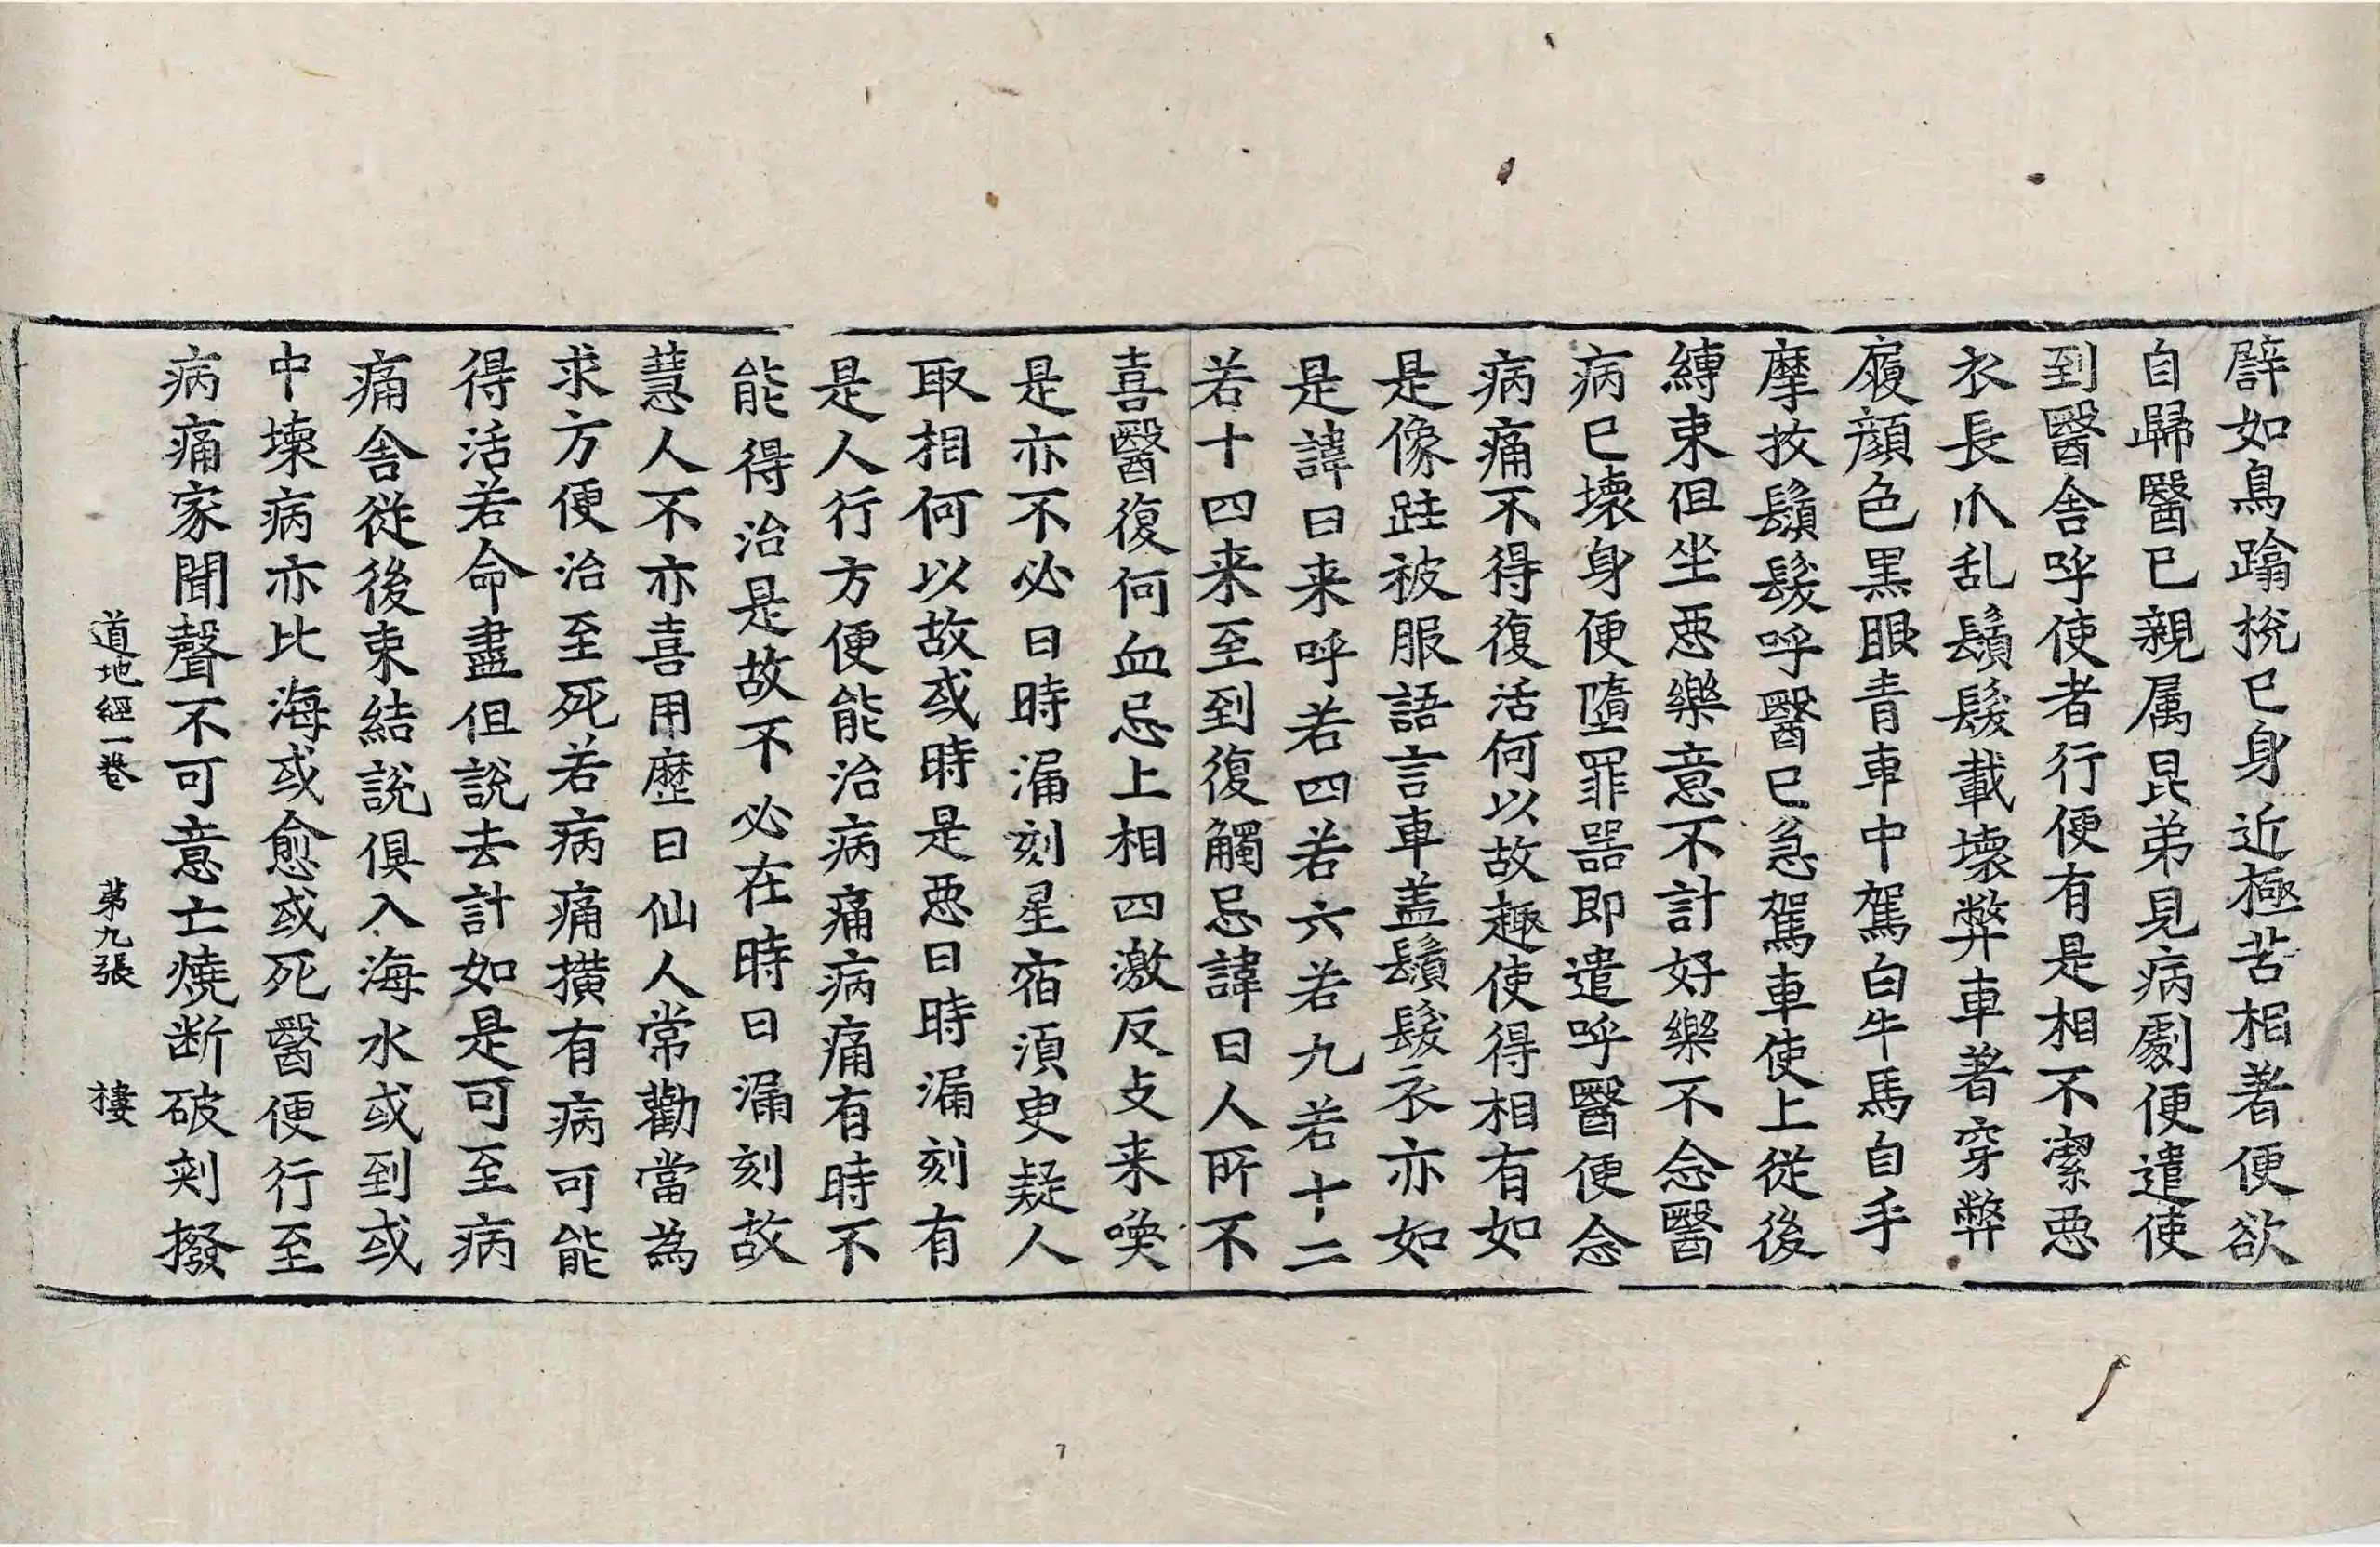 辟如鳥踰挩已身近極苦相著便欲
自歸醫已親属昆弟見病劇便遣使
到醫舍呼使者行便有是相不潔惡
衣長爪乱鬚髮載壞弊車著穿弊
履顔色黒眼青車中駕白牛馬自手
摩抆鬚髮呼醫已急駕車使上從後
縛束但坐惡樂意不計好樂不念醫
病已壞身便墮罪噐即遣呼醫便念
病痛不得復活何以故趣使得相有如
是像跓被服語言車盖鬚髮衣亦如
是諱日来呼若四若六若九若十二
若十四来至到復觸忌諱日人所不
喜醫復何血忌上相四激反支来喚
是亦不必日時漏刻星宿湏臾疑人
取相何以故或時是惡日時漏刻有
是人行方便能治病痛病痛有時不
能得治是故不必在時日漏刻故
慧人不亦喜用歴日仙人常勸當為
求方便治至死若病痛撗有病可能
得活若命盡但說去計如是可至病
痛舎從後束結說俱入海水或到或
中壊病亦比海或愈或死醫便行至
病痛家聞聲不可意亡燒断破刾撥
道地經一卷 苐九張 捿